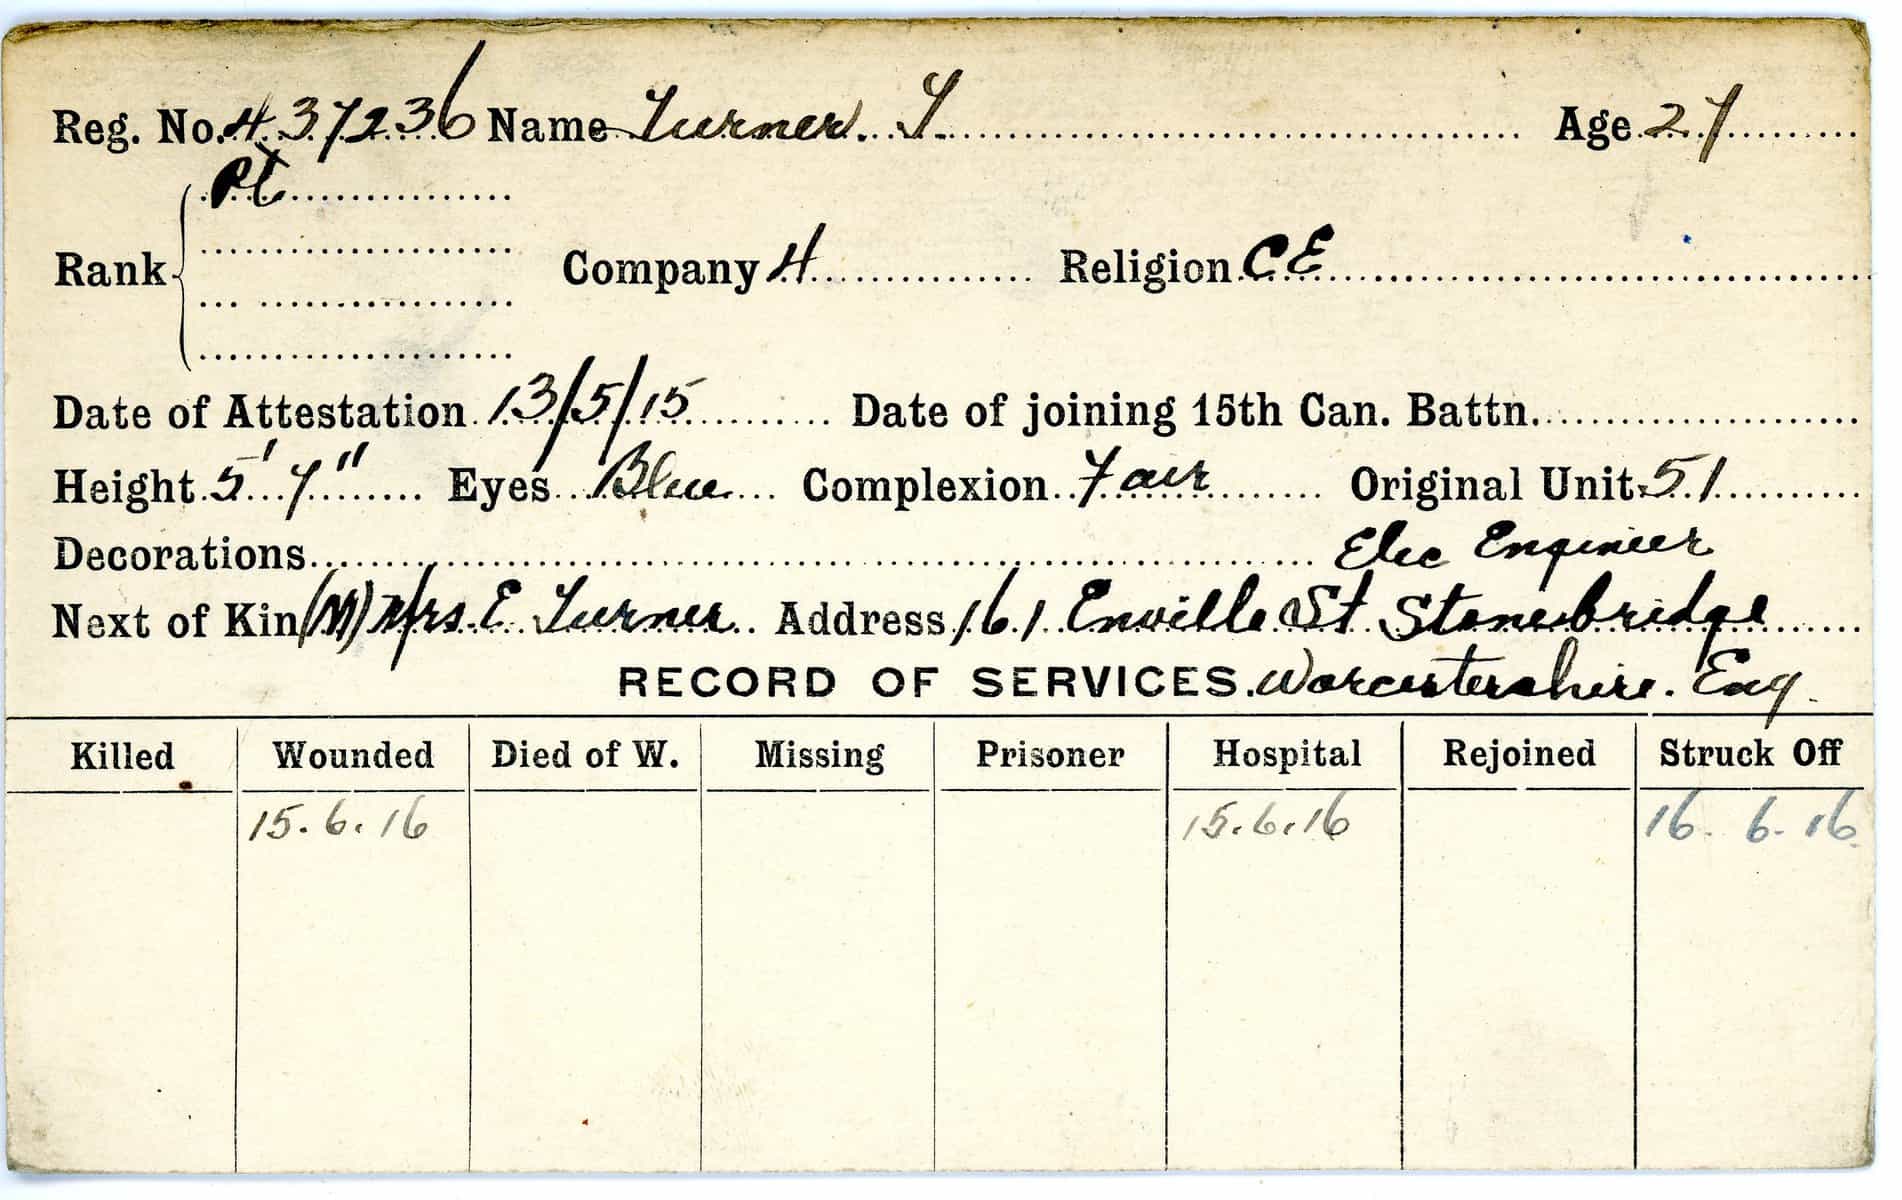 Reg. No. 437236 Name Turner. T. Age 27
Pt
Rank Company 4 Religion C E
Date of Attestation 13/5/15 Date of joining 15th Can. Battn.
Height 5' 7" Eyes Blue Complexion Fair Original Unit 51
Decorations Elec Engineer
Next of Kin (M) Mrs. E. Turner Address 161 Enville St Stonebridge
RECORD OF SERVICES. Worcestershire. Eng.
Killed Wounded Died of W. Missing Prisoner Hospital Rejoined Struck Off
15.6.16 15.6.16 16.6.16